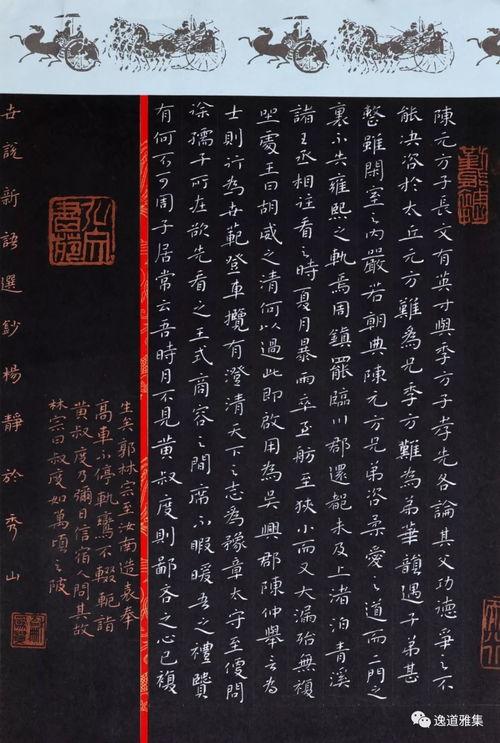 陳元方子長文有英才與季方子孝先各論其父功德爭之不
能決咨於太丘元方難為兄季方難為弟華遇子弟甚
整雖閑室之內嚴若朝典陳元方兄弟恣柔愛之道而二門之
裏不失雍熙之軌焉周鎮罷臨川郡還都未及上渚泊青溪
諸王丞相往看之時夏月暴雨卒至舫至狹小而又大漏殆無複
坐處王曰胡威之清何以過此即啟用為吳興郡陳仲舉言為
士則行為世範登車攬有澄清天下之志為豫章太守至便問
徐孺子所在欲先看之王式商容之閭席不暇暖吾之禮賢
有何不可周子居常云吾時月不見黃叔度則鄙吝之心已複
生矣郭林宗至汝南造袁奉
高車不停軌鸞不輟軛詣
黃叔度乃彌日信宿問其故
林宗曰叔度如萬頃之陂
世說新語選鈔楊靜於秀山
逸道雅集